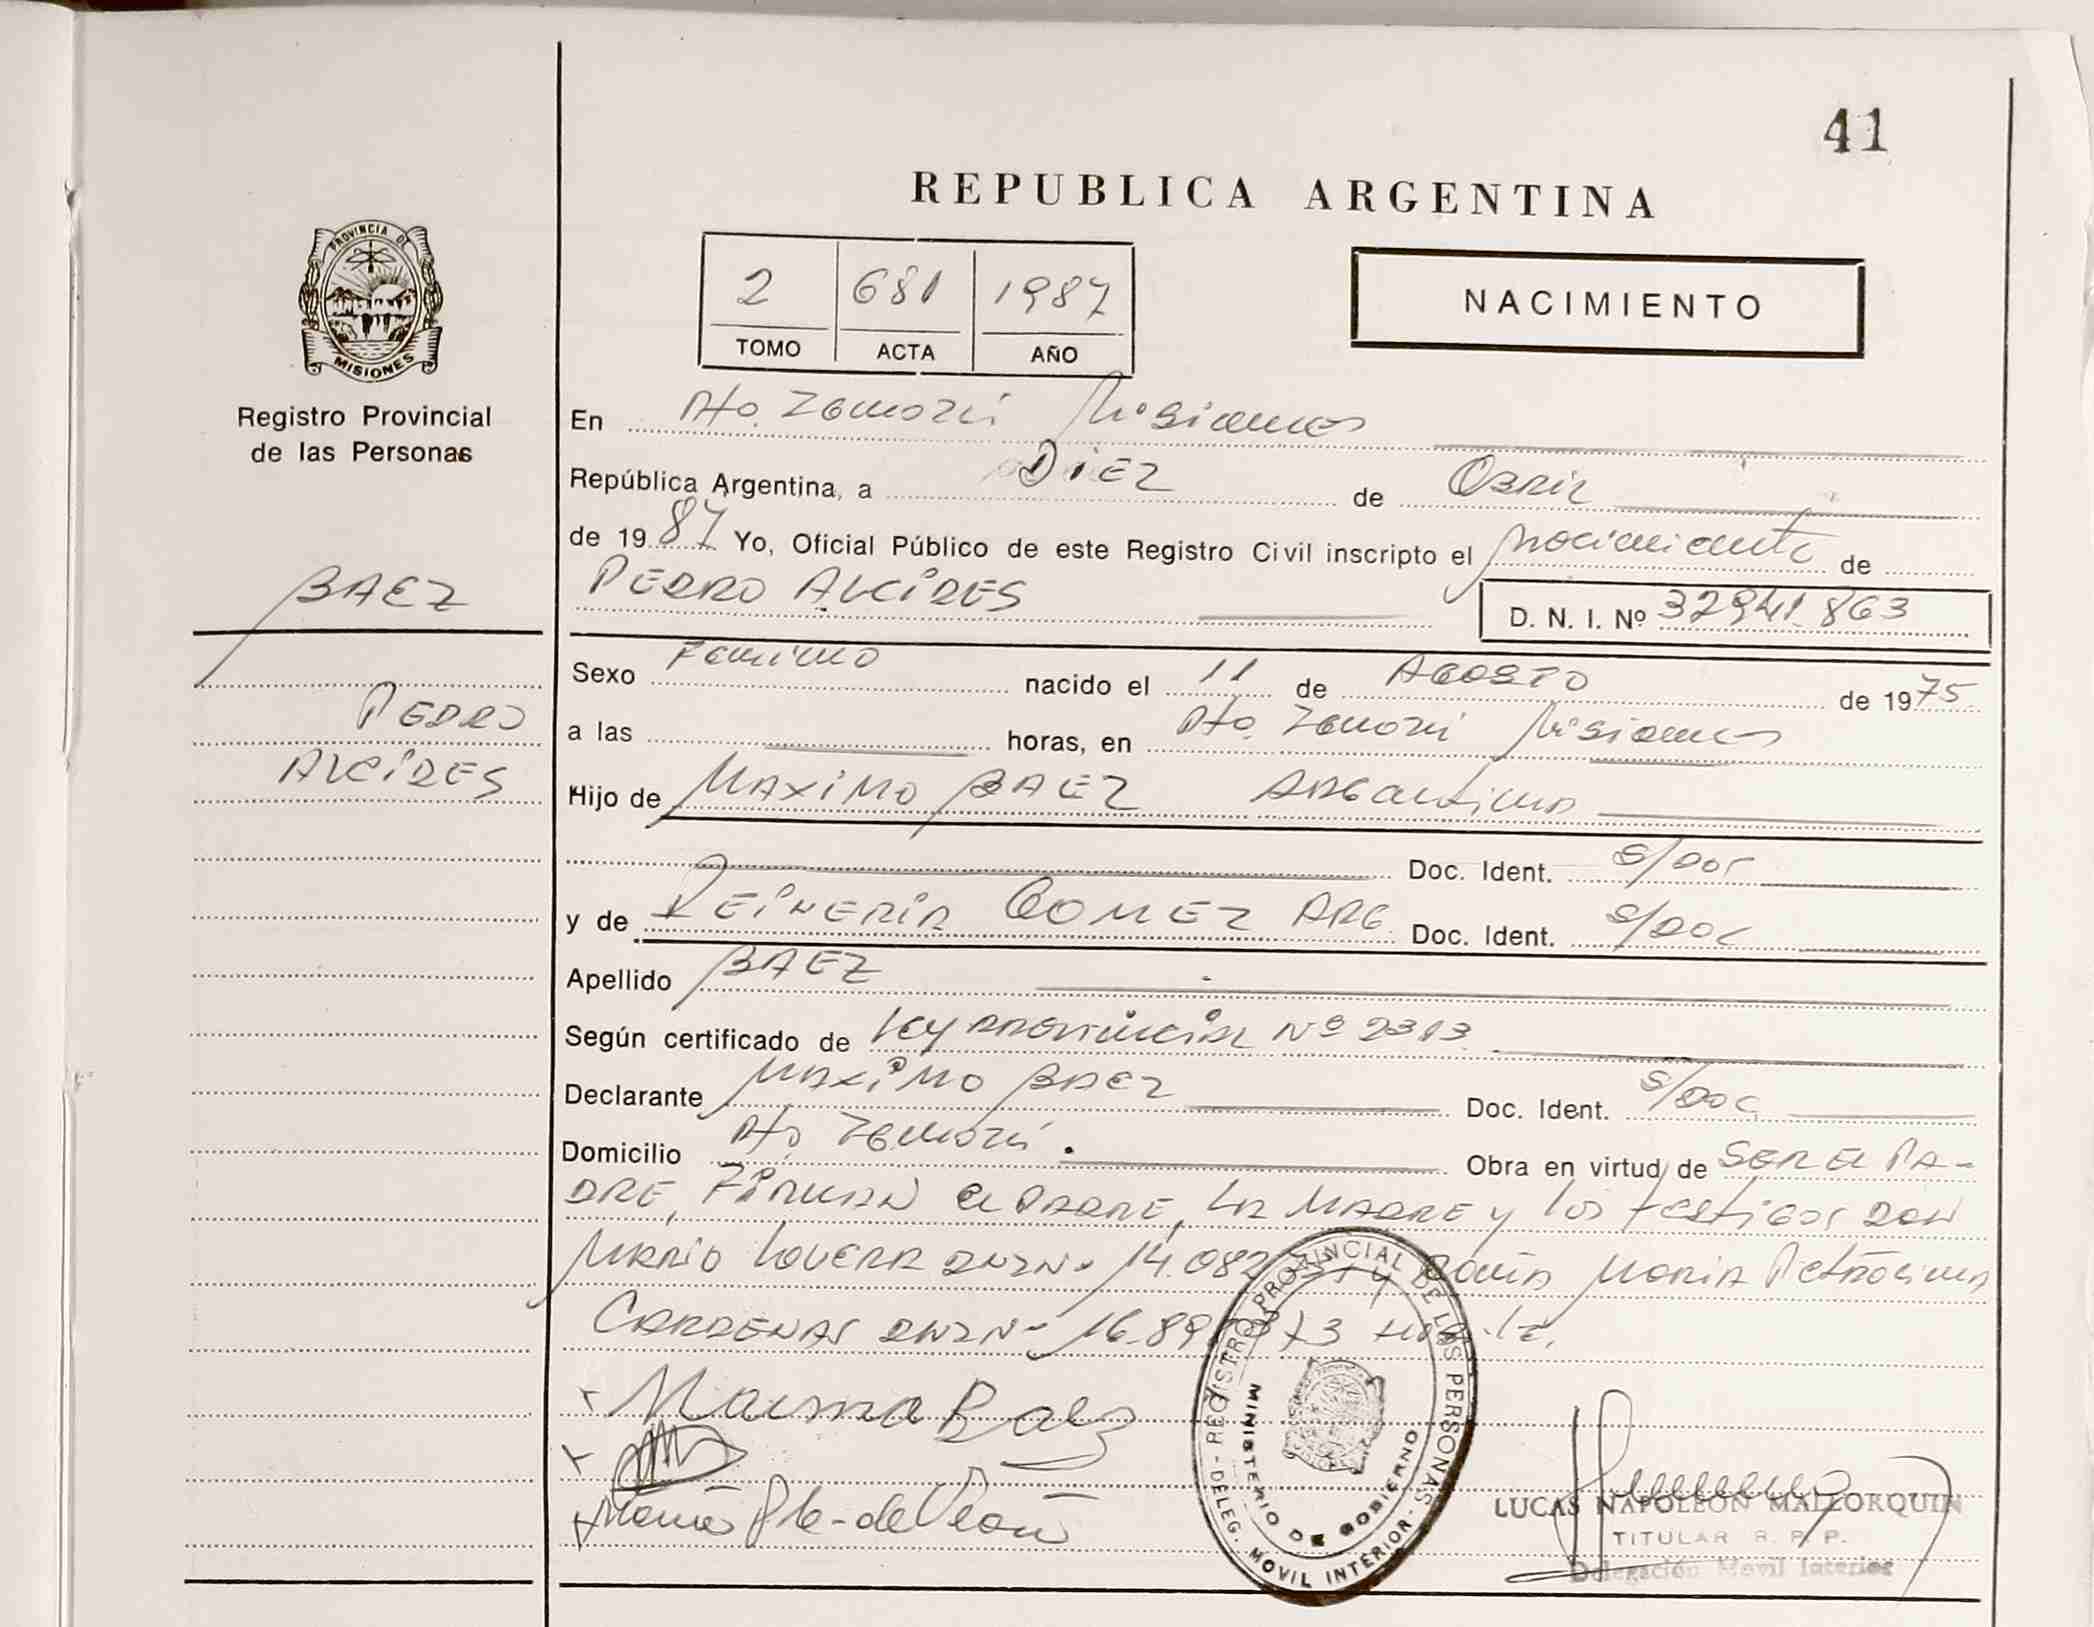 41
REPUBLICA ARGENTINA
PROVINCIA DE
MISIONES
Registro Provincial
de las Personas
2 681 1987
TOMO ACTA AÑO
NACIMIENTO
En Pto. Misiones
República Argentina, a DiEZ de ABRIL
de 1987 Yo, Oficial Público de este Registro Civil inscripto el nacimiento de
PEDRO ALCIDES
D. N. I. Nº 32941.863
BAEZ
PEDRO
ALCIDES
Sexo nacido el 11 de AGOSTO de 1975
a las horas, en Pto. Misiones
Hijo de MAXIMO BAEZ ARGentino
Doc. Ident. S/DOC
y de GOMEZ ARG. Doc. Ident. S/DOC
Apellido BAEZ
Según certificado de Ley PROVINCIAL Nº 2313
Declarante MAXIMO BAEZ Doc. Ident. S/DOC
Domicilio Pto. Obra en virtud de SER EL PA-
DRE, FIRMAN el PADRE, LA MADRE y los testigos DON
MARIO LOVERA DNI Nº 14.082 DOÑA MARIA
CARDENAS DNI Nº 16.89
Baez
REGISTRO PROVINCIAL DE LAS PERSONAS
MINISTERIO DE GOBIERNO
DELEG. MOVIL INTERIOR
LUCAS NAPOLEON MALLORQUIN
TITULAR R. P. P.
Delegación Movil Interior